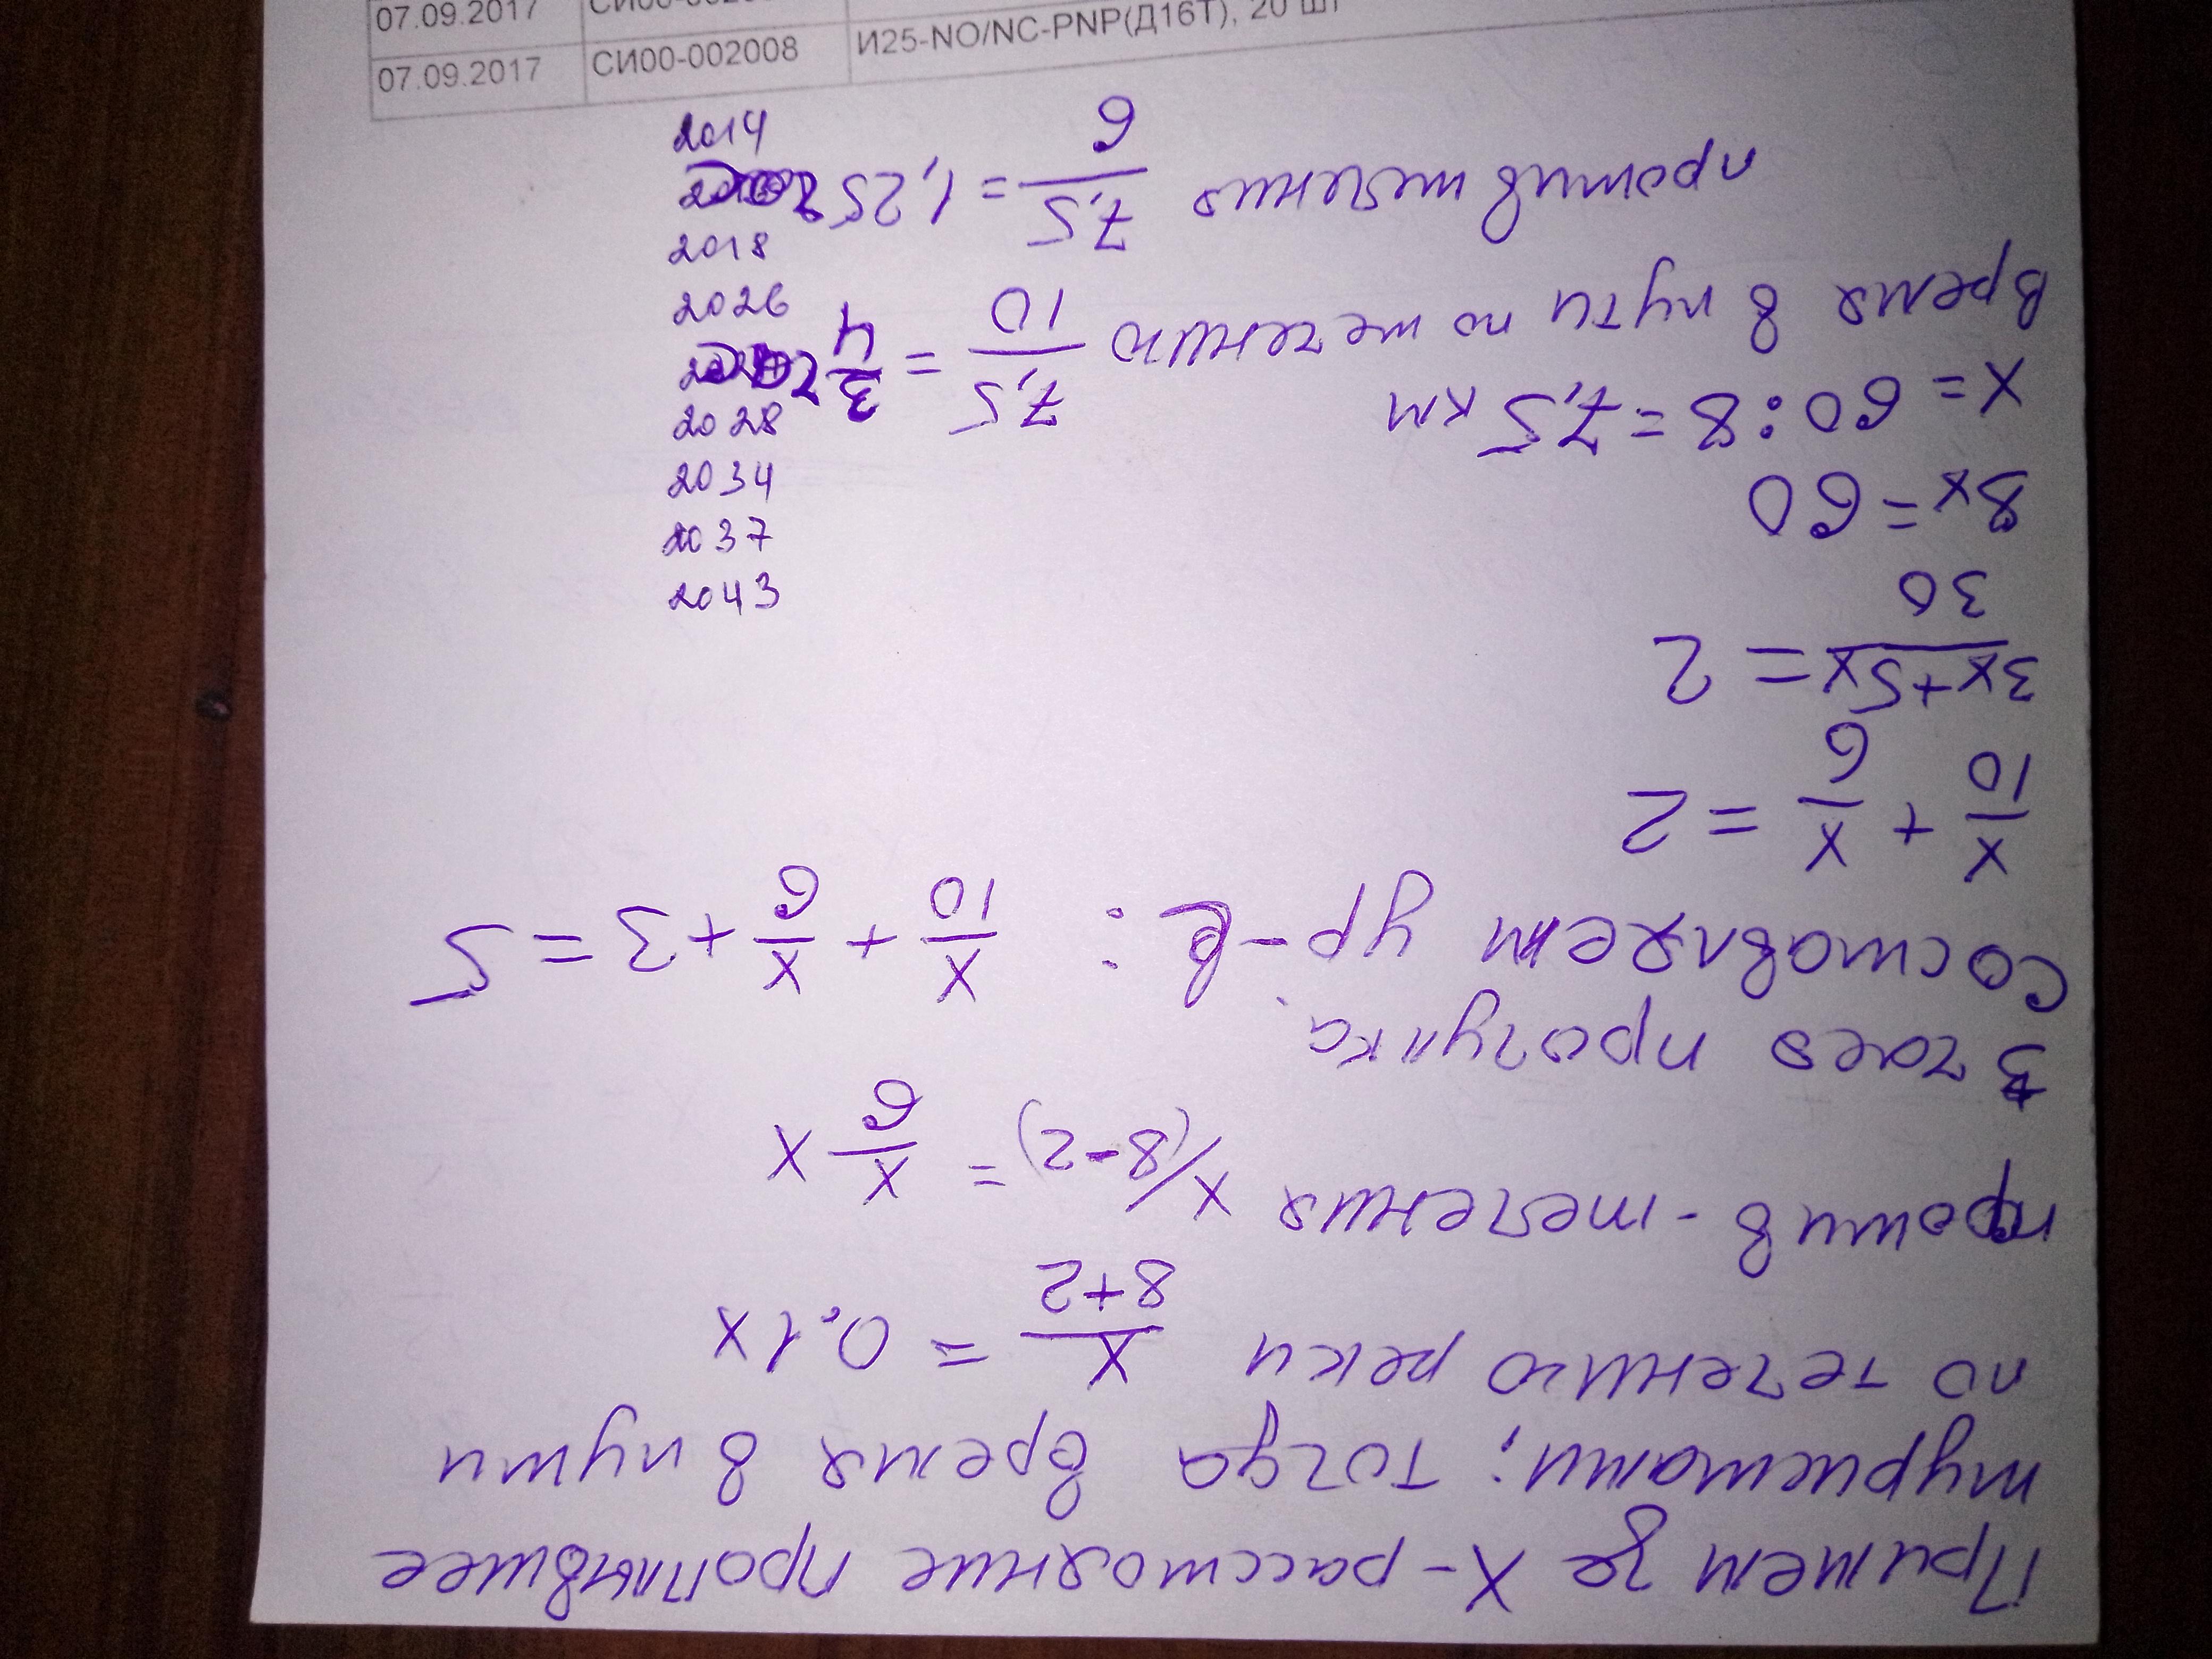 Примем за X - расстояние проплывшее
туристами; тогда время в пути
по течению реки X/(8+2) = 0,1x
против - течения X/(8-2) = X/6 X
3 часа прогулка.
Составляем ур-е: X/10 + X/6 + 3 = 5
X/10 + X/6 = 2
(3x+5x)/30 = 2
8x = 60
X = 60:8 = 7,5 км
Время в пути по течению 7,5/10 = 3/4
против течения 7,5/6 = 1,25
07.09.2017
07.09.2017 СИ00-002008 И25-NO/NC-PNP(Д16Т), 20 шт
2014
2018
2026
2028
2034
2037
2043